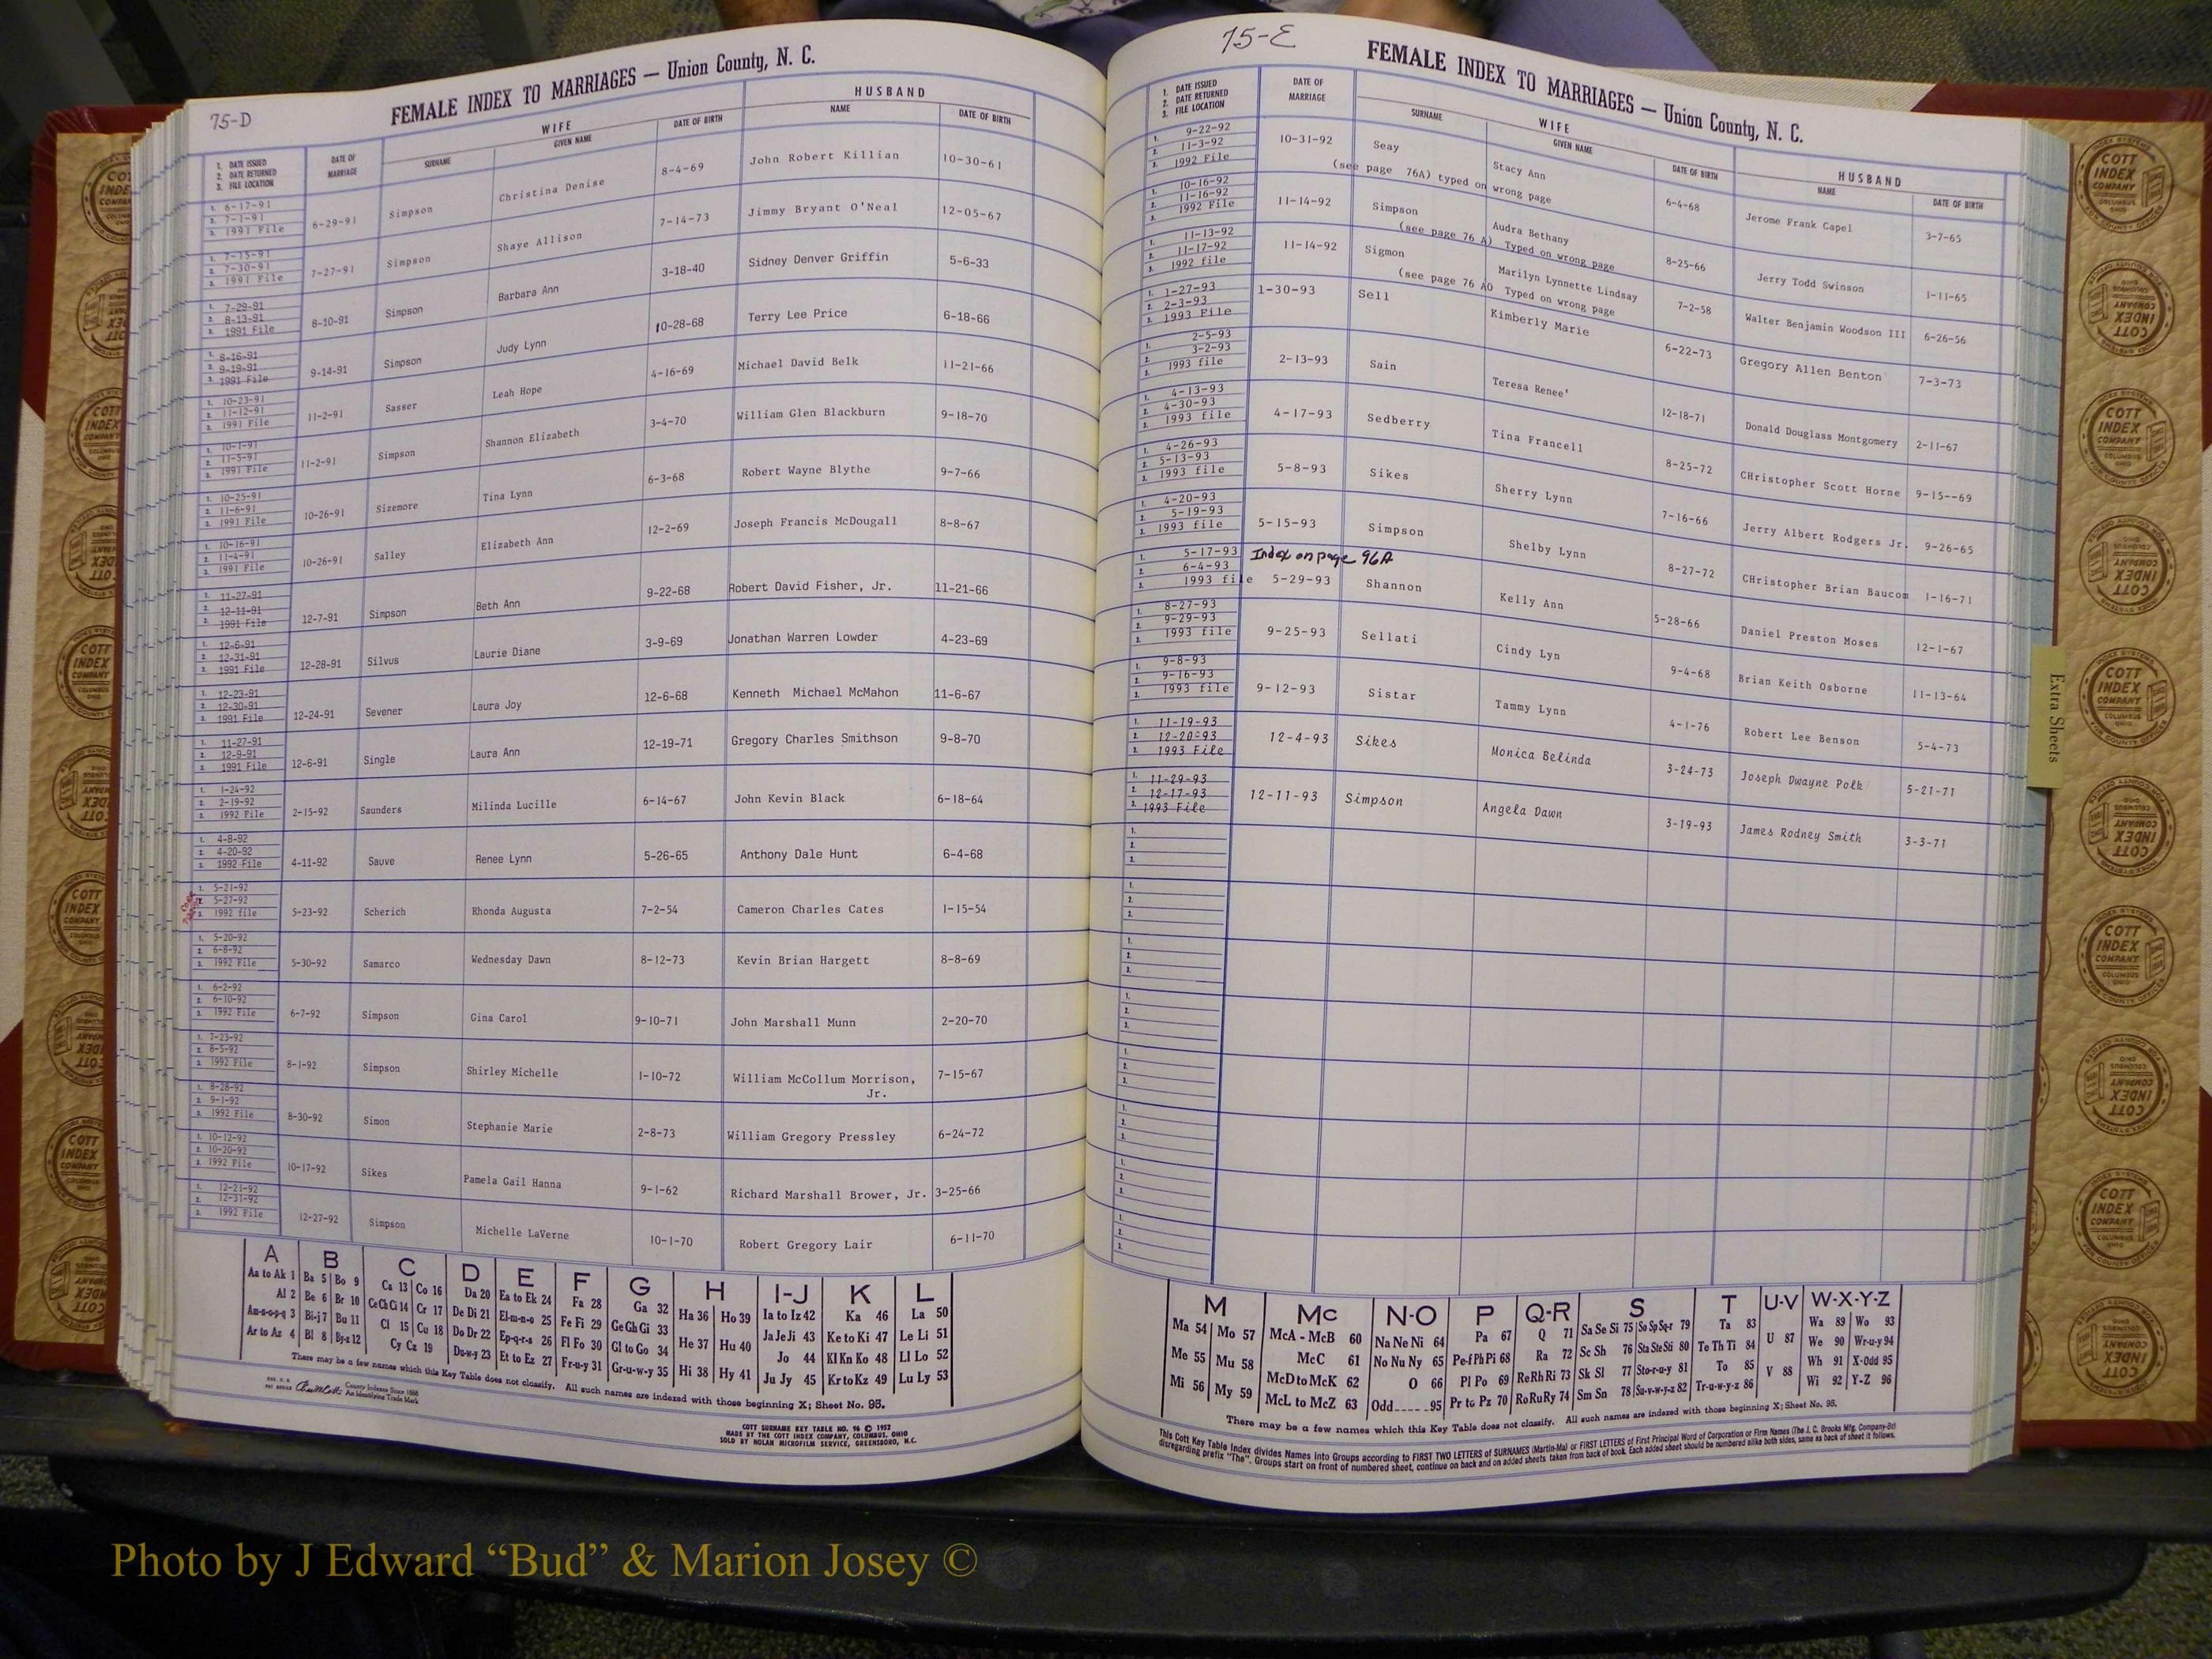 75-D
FEMALE INDEX TO MARRIAGES — Union County, N. C.
1. DATE ISSUED
2. DATE RETURNED
3. FILE LOCATION
DATE OF MARRIAGE
WIFE
SURNAME GIVEN NAME DATE OF BIRTH
HUSBAND
NAME DATE OF BIRTH
1. 6-17-91
2. 7-1-91
3. 1991 File
6-29-91 Simpson Christina Denise 8-4-69 John Robert Killian 10-30-61
1. 7-15-91
2. 7-30-91
3. 1991 File
7-27-91 Simpson Shaye Allison 7-14-73 Jimmy Bryant O'Neal 12-05-67
1. 7-29-91
2. 8-13-91
3. 1991 File
8-10-91 Simpson Barbara Ann 3-18-40 Sidney Denver Griffin 5-6-33
1. 8-16-91
2. 9-19-91
3. 1991 File
9-14-91 Simpson Judy Lynn 10-28-68 Terry Lee Price 6-18-66
1. 10-23-91
2. 11-12-91
3. 1991 File
11-2-91 Sasser Leah Hope 4-16-69 Michael David Belk 11-21-66
1. 10-1-91
2. 11-5-91
3. 1991 File
11-2-91 Simpson Shannon Elizabeth 3-4-70 William Glen Blackburn 9-18-70
1. 10-25-91
2. 11-6-91
3. 1991 File
10-26-91 Sizemore Tina Lynn 6-3-68 Robert Wayne Blythe 9-7-66
1. 10-16-91
2. 11-4-91
3. 1991 File
10-26-91 Salley Elizabeth Ann 12-2-69 Joseph Francis McDougall 8-8-67
1. 11-27-91
2. 12-11-91
3. 1991 File
12-7-91 Simpson Beth Ann 9-22-68 Robert David Fisher, Jr. 11-21-66
1. 12-6-91
2. 12-31-91
3. 1991 File
12-28-91 Silvus Laurie Diane 3-9-69 Jonathan Warren Lowder 4-23-69
1. 12-23-91
2. 12-30-91
3. 1991 File
12-24-91 Sevener Laura Joy 12-6-68 Kenneth Michael McMahon 11-6-67
1. 11-27-91
2. 12-9-91
3. 1991 File
12-6-91 Single Laura Ann 12-19-71 Gregory Charles Smithson 9-8-70
1. 1-24-92
2. 2-19-92
3. 1992 File
2-15-92 Saunders Milinda Lucille 6-14-67 John Kevin Black 6-18-64
1. 4-8-92
2. 4-20-92
3. 1992 File
4-11-92 Sauve Renee Lynn 5-26-65 Anthony Dale Hunt 6-4-68
1. 5-21-92
2. 5-27-92
3. 1992 file
5-23-92 Scherich Rhonda Augusta 7-2-54 Cameron Charles Cates 1-15-54
1. 5-20-92
2. 6-8-92
3. 1992 File
5-30-92 Samarco Wednesday Dawn 8-12-73 Kevin Brian Hargett 8-8-69
1. 6-2-92
2. 6-10-92
3. 1992 File
6-7-92 Simpson Gina Carol 9-10-71 John Marshall Munn 2-20-70
1. 7-23-92
2. 8-5-92
3. 1992 File
8-1-92 Simpson Shirley Michelle 1-10-72 William McCollum Morrison, 7-15-67
Jr.
1. 8-28-92
2. 9-1-92
3. 1992 File
8-30-92 Simon Stephanie Marie 2-8-73 William Gregory Pressley 6-24-72
1. 10-12-92
2. 10-20-92
3. 1992 File
10-17-92 Sikes Pamela Gail Hanna 9-1-62 Richard Marshall Brower, Jr. 3-25-66
1. 12-21-92
2. 12-31-92
3. 1992 File
12-27-92 Simpson Michelle LaVerne 10-1-70 Robert Gregory Lair 6-11-70
A B C D E F G H I-J K L
Aa to Ak 1 Ba 5 Bo 9 Ca 13 Co 16 Da 20 Ea to Ek 24 Fa 28 Ga 32 Ha 36 Ho 39 Ia to Iz 42 Ka 46 La 50
Al 2 Be 6 Br 10 Ce Ch Ci 14 Cr 17 De Di 21 El-m-n-o 25 Fe Fi 29 Ge Gh Gi 33 He 37 Hu 40 Ja Je Ji 43 Ke to Ki 47 Le Li 51
Am-n-o-p-q 3 Bi-j 7 Bu 11 Cl 15 Cu 18 Do Dr 22 Ep-q-r-s 26 Fl Fo 30 Gl to Go 34 Hi 38 Hy 41 Jo 44 Kl Kn Ko 48 Ll Lo 52
Ar to Az 4 Bl 8 By-z 12 Cy Cz 19 Du-w-y 23 Et to Ez 27 Fr-u-y 31 Gr-u-w-y 35 Ju Jy 45 Kr to Kz 49 Lu Ly 53
There may be a few names which this Key Table does not classify. All such names are indexed with those beginning X; Sheet No. 95.
County Indexes Since 1888
An Identifying Trade Mark
COTT SURNAME KEY TABLE NO. 96 © 1952
MADE BY THE COTT INDEX COMPANY, COLUMBUS, OHIO
SOLD BY NOLAN MICROFILM SERVICE, GREENSBORO, N.C.
75-E
FEMALE INDEX TO MARRIAGES — Union County, N. C.
1. DATE ISSUED
2. DATE RETURNED
3. FILE LOCATION
DATE OF MARRIAGE
WIFE
SURNAME GIVEN NAME DATE OF BIRTH
HUSBAND
NAME DATE OF BIRTH
1. 9-22-92
2. 11-3-92
3. 1992 File
10-31-92 Seay Stacy Ann 6-4-68 Jerome Frank Capel 3-7-65
(see page 76A) typed on wrong page
1. 10-16-92
2. 11-16-92
3. 1992 File
11-14-92 Simpson Audra Bethany 8-25-66 Jerry Todd Swinson 1-11-65
(see page 76 A) Typed on wrong page
1. 11-13-92
2. 11-17-92
3. 1992 file
11-14-92 Sigmon Marilyn Lynnette Lindsay 7-2-58 Walter Benjamin Woodson III 6-26-56
(see page 76 A0 Typed on wrong page
1. 1-27-93
2. 2-3-93
3. 1993 File
1-30-93 Sell Kimberly Marie 6-22-73 Gregory Allen Benton 7-3-73
1. 2-5-93
2. 3-2-93
3. 1993 file
2-13-93 Sain Teresa Renee' 12-18-71 Donald Douglass Montgomery 2-11-67
1. 4-13-93
2. 4-30-93
3. 1993 file
4-17-93 Sedberry Tina Francell 8-25-72 CHristopher Scott Horne 9-15--69
1. 4-26-93
2. 5-13-93
3. 1993 file
5-8-93 Sikes Sherry Lynn 7-16-66 Jerry Albert Rodgers Jr. 9-26-65
1. 4-20-93
2. 5-19-93
3. 1993 file
5-15-93 Simpson Shelby Lynn 8-27-72 CHristopher Brian Baucom 1-16-71
1. 5-17-93
2. 6-4-93
3. 1993 file
Index on page 96A
5-29-93 Shannon Kelly Ann 5-28-66 Daniel Preston Moses 12-1-67
1. 8-27-93
2. 9-29-93
3. 1993 file
9-25-93 Sellati Cindy Lyn 9-4-68 Brian Keith Osborne 11-13-64
1. 9-8-93
2. 9-16-93
3. 1993 file
9-12-93 Sistar Tammy Lynn 4-1-76 Robert Lee Benson 5-4-73
1. 11-19-93
2. 12-20-93
3. 1993 File
12-4-93 Sikes Monica Belinda 3-24-73 Joseph Dwayne Polk 5-21-71
1. 11-29-93
2. 12-17-93
3. 1993 File
12-11-93 Simpson Angela Dawn 3-19-93 James Rodney Smith 3-3-71
M Mc N-O P Q-R S T U-V W-X-Y-Z
Ma 54 Mo 57 McA - McB 60 Na Ne Ni 64 Pa 67 Q 71 Sa Se Si 75 So Sp Sq-r 79 Ta 83 U 87 Wa 89 Wo 93
Me 55 Mu 58 McC 61 No Nu Ny 65 Pe-f Ph Pi 68 Ra 72 Sc Sh 76 Sta Ste Sti 80 Te Th Ti 84 V 88 We 90 Wr-u-y 94
Mi 56 My 59 McD to McK 62 O 66 Pl Po 69 Re Rh Ri 73 Sk Sl 77 Sto-r-u-y 81 To 85 Wh 91 X-Odd 95
McL to McZ 63 Odd 95 Pr to Pz 70 Ro Ru Ry 74 Sm Sn 78 Su-v-w-y-z 82 Tr-u-w-y-z 86 Wi 92 Y-Z 96
There may be a few names which this Key Table does not classify. All such names are indexed with those beginning X; Sheet No. 95.
This Cott Key Table Index divides Names into Groups according to FIRST TWO LETTERS of SURNAMES (Martin-Ma) or FIRST LETTERS of First Principal Word of Corporation or Firm Names (The J. C. Brooks Mfg. Company-Br)
disregarding prefix "The". Groups start on front of numbered sheet, continue on back and on added sheets taken from back of book. Each added sheet should be numbered alike both sides, same as back of sheet it follows.
Extra Sheets
COTT INDEX COMPANY
COLUMBUS OHIO
Photo by J Edward “Bud” & Marion Josey ©